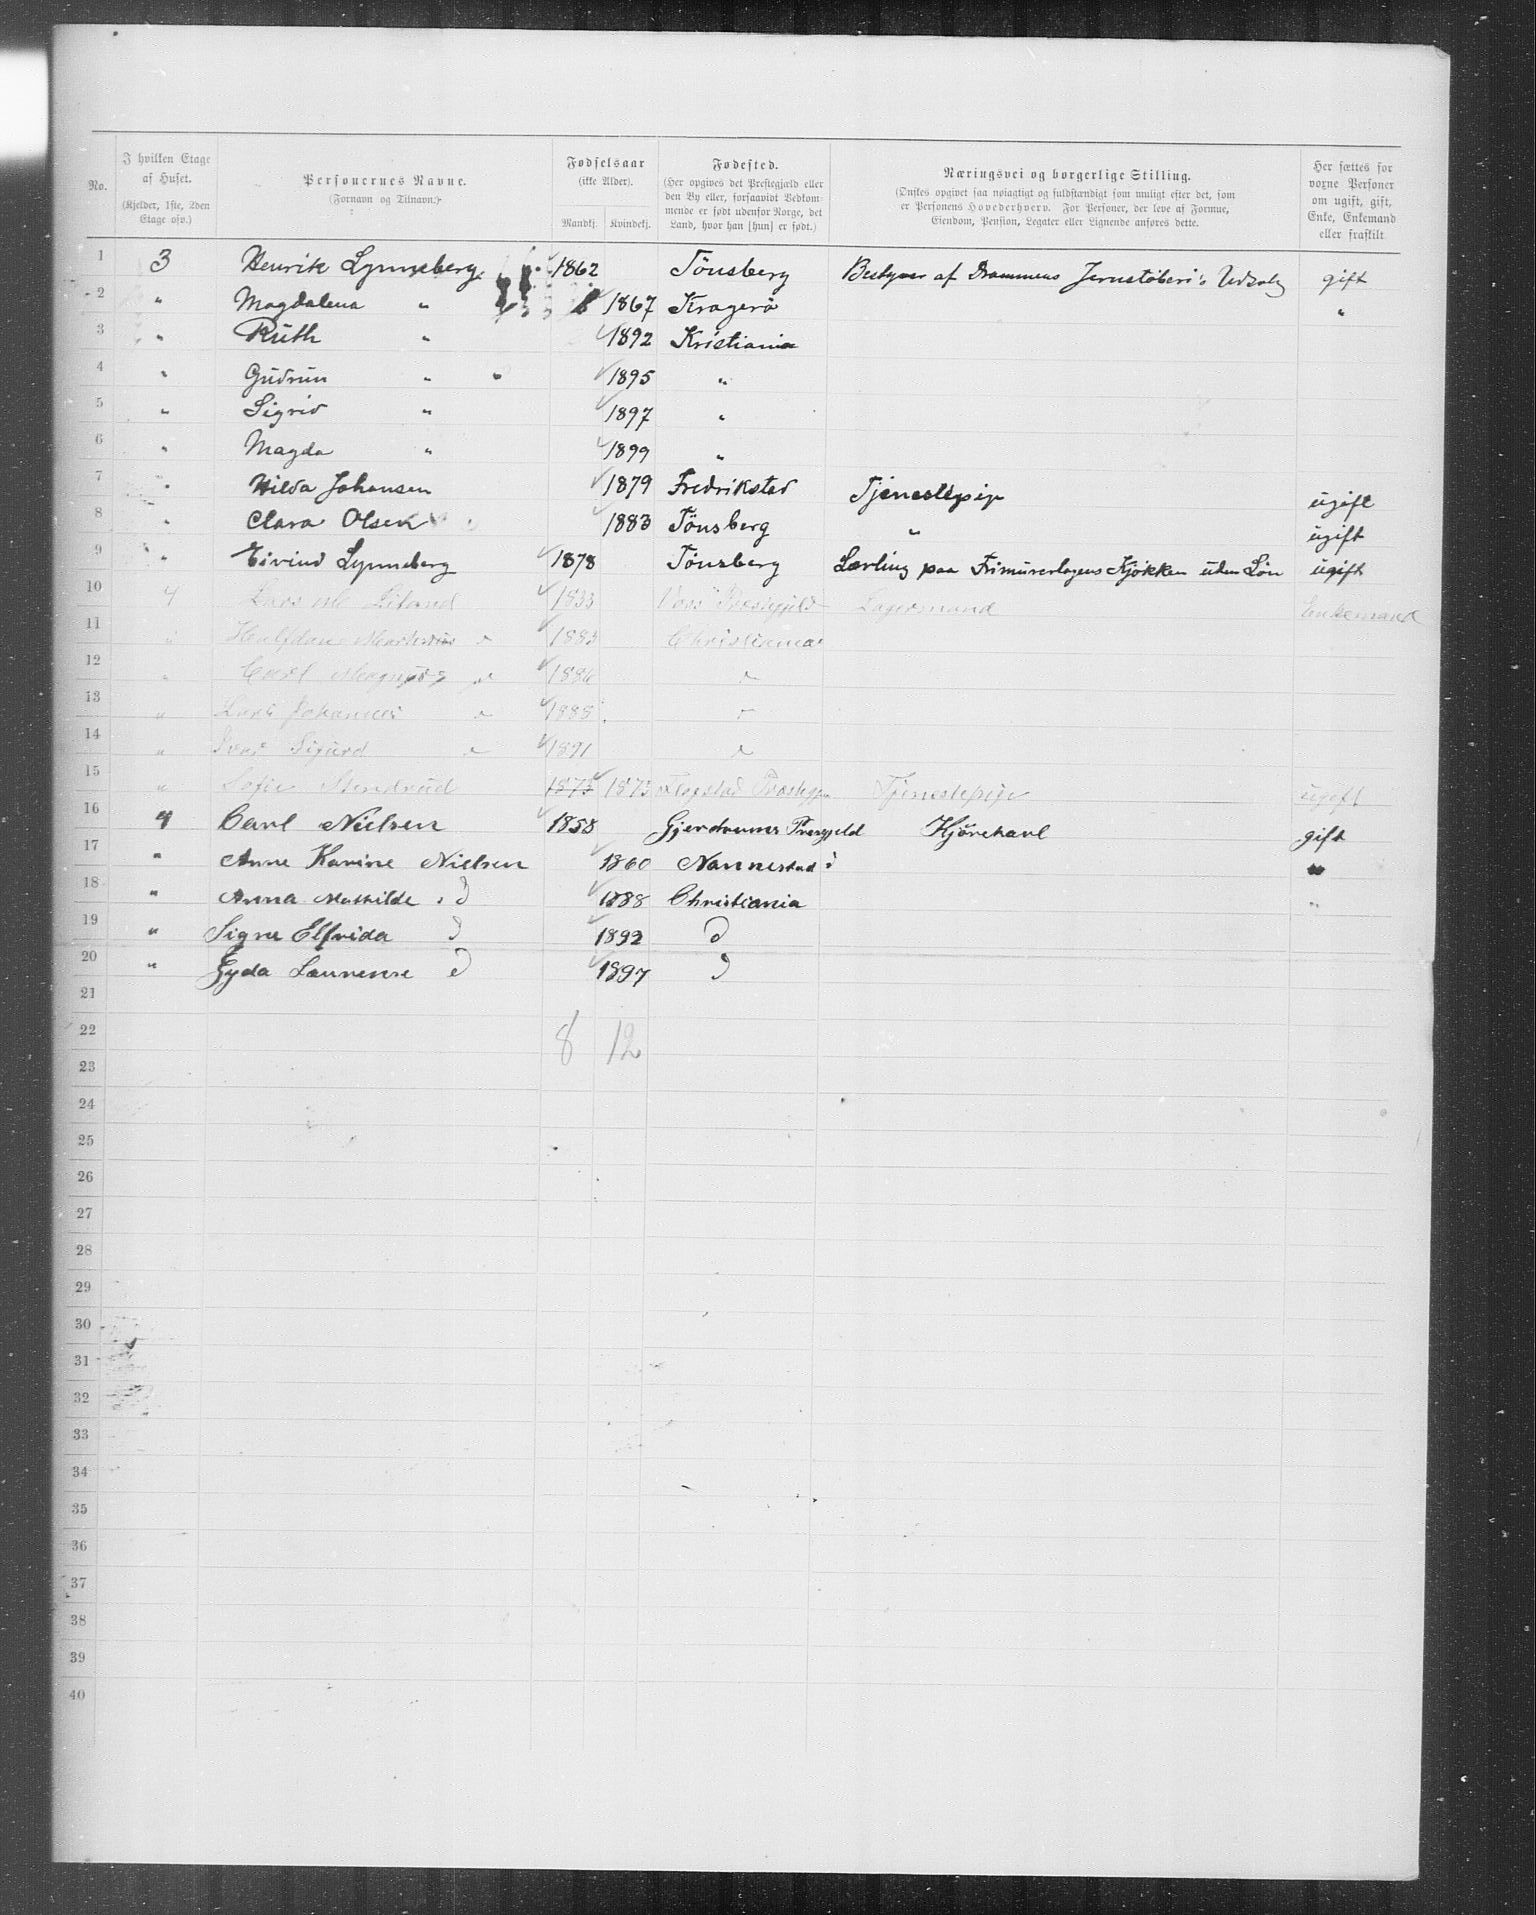 No. I hvilken Etage af Huset. (Kjelder, 1ste, 2den Etage osv.) Personernes Navne. (Fornavn og Tilnavn.) Fødselsaar (ikke Alder). Mandkj. Kvindekj. Fødested. (Her opgives det Prestegjæld eller den By eller, forsaavidt Vedkommende er født udenfor Norge, det Land, hvor han [hun] er født.) Næringsvei og borgerlige Stilling. (Ønskes opgivet saa nøiagtigt og fuldstændigt som muligt efter det, som er Personens Hovederhverv. For Personer, der leve af Formue, Eiendom, Pension, Legater eller Lignende anføres dette. Her sættes for voxne Personer om ugift, gift, Enke, Enkemand eller fraskilt
1 3 Henrik Lynneberg 1862 Tönsberg Bestyrer af Drammens Jernstöberi's Udsalg gift
2 " Magdalena " 1867 Kragerö "
3 " Ruth " 1892 Kristiania
4 " Gudrun " 1895 "
5 " Sigrid " 1897 "
6 " Magda " 1899 "
7 " Hilda Johansen 1879 Fredrikstad Tjenestepige ugift
8 " Clara Olsen 1883 Tönsberg " ugift
9 " Eivind Lynneberg 1878 Tönsberg Lærling paa Frimurerlogens Kjökken uden Lön ugift
10 4 Lars 1833 Voss Præstegjeld Lagermand Enkemand
11 " Halfdan " 1883 Christiania
12 " Carl Magnus " 1886 "
13 " Lars Johannes " 1888 "
14 " Ivar Sigurd " 1891 "
15 " Sofie 1873 1873 Tjenestepige ugift
16 4 Carl Nielsen 1858 Gjerdrums Presgjeld Kjörekarl gift
17 " Anne Karine Nielsen 1860 Nannestad d "
18 " Anna Mathilde d 1888 Christiania "
19 " Signe Elfrida d 1892 d
20 " Gyda Laurense d 1897 d
21
22 8 12
23
24
25
26
27
28
29
30
31
32
33
34
35
36
37
38
39
40